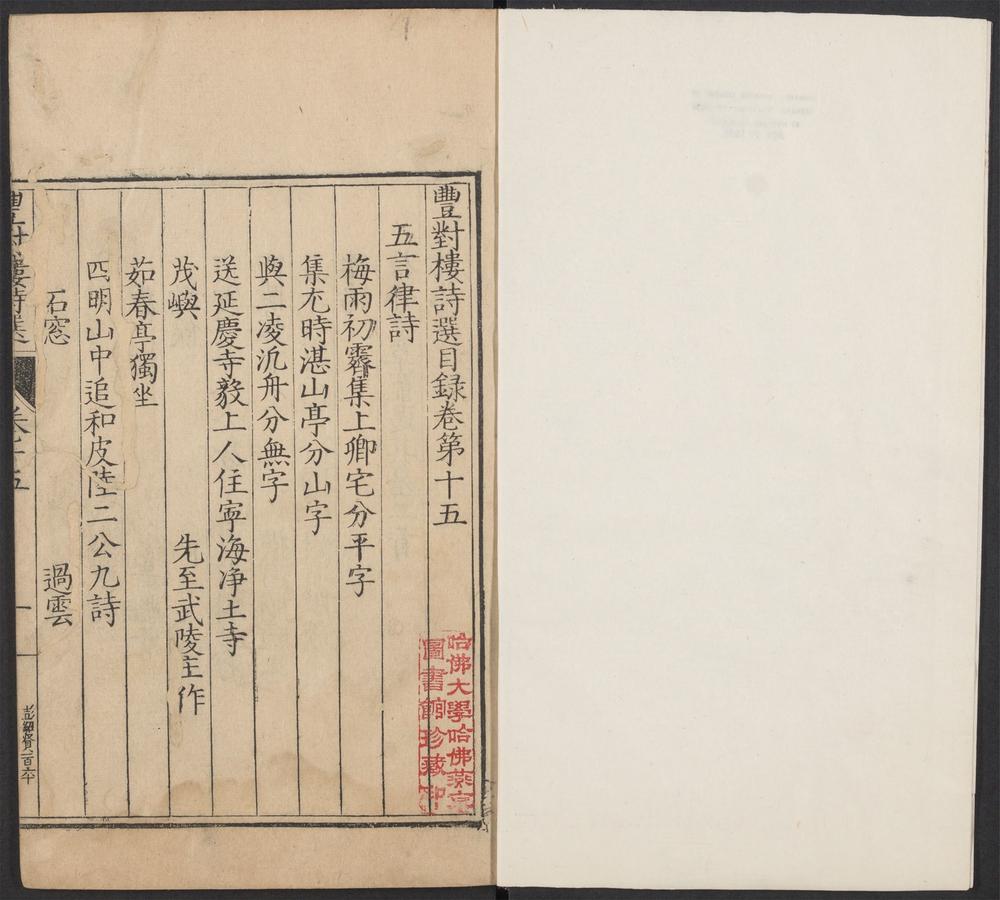 豐對樓詩選目録卷第十五
五言律詩
梅雨初霽集上卿宅分平字
集尢時湛山亭分山字
與二凌汎舟分無字
送延慶寺毅上人住寧海净土寺
茂嶼 先至武陵主作
茹春亭獨坐
四明山中追和皮陸二公九詩
石窓 過雲
豐對樓詩選
卷十五
一
哈佛大學哈佛燕京
圖書館珍藏印